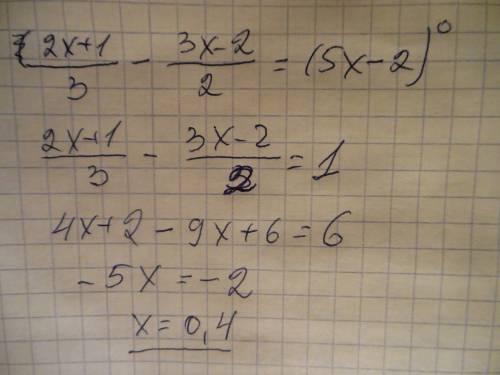 (2x+1)/3 - (3x-2)/2 = (5x-2)⁰
(2x+1)/3 - (3x-2)/2 = 1
4x+2-9x+6=6
-5x=-2
x=0,4